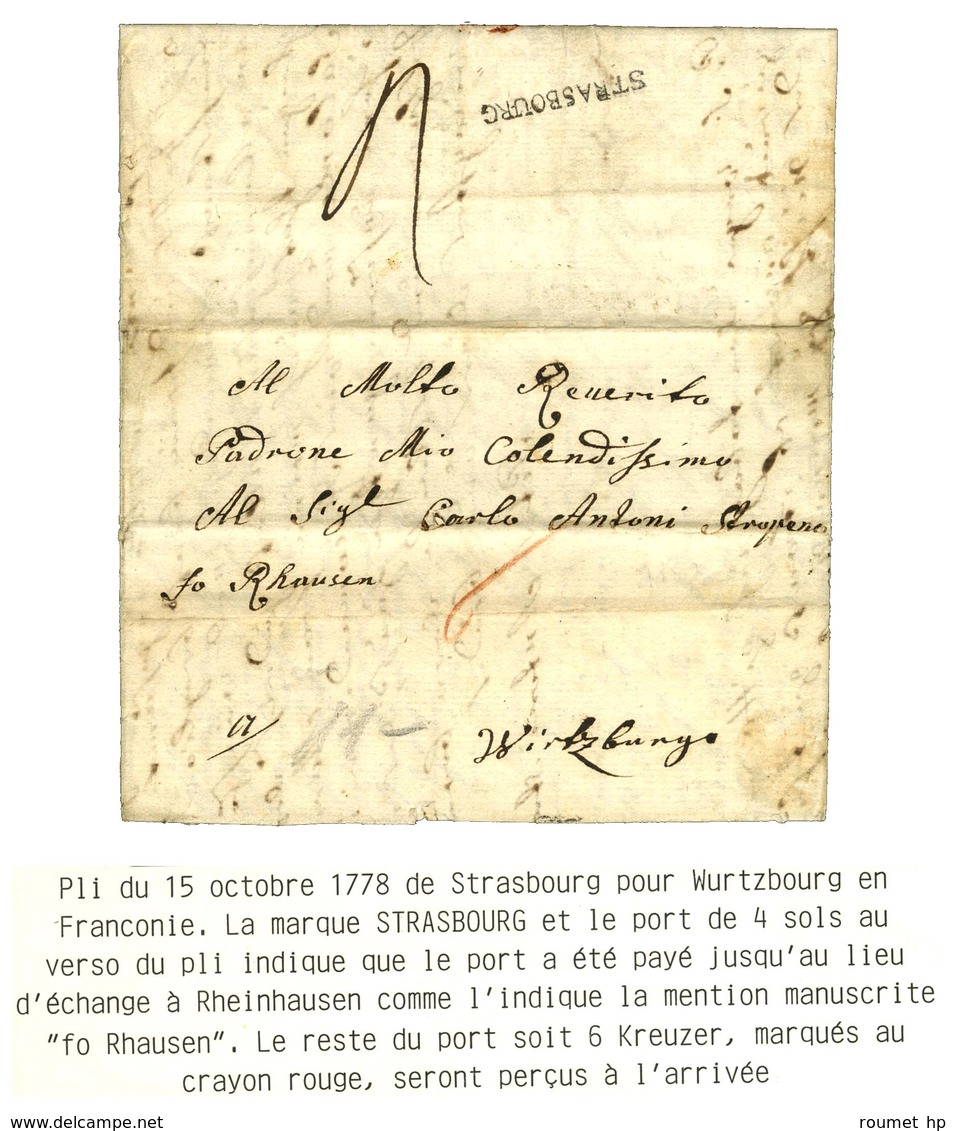 STRASBOURG
4
Al Molto Reverito
Padrone Mio Colendissimo
Al Sigl Carlo Antoni
fo Rhausen
6
a
Wirtzburg
Pli du 15 octobre 1778 de Strasbourg pour Wurtzbourg en
Franconie. La marque STRASBOURG et le port de 4 sols au
verso du pli indique que le port a été payé jusqu'au lieu
d'échange à Rheinhausen comme l'indique la mention manuscrite
"fo Rhausen". Le reste du port soit 6 Kreuzer, marqués au
crayon rouge, seront perçus à l'arrivée
www.delcampe.net
roumet hp